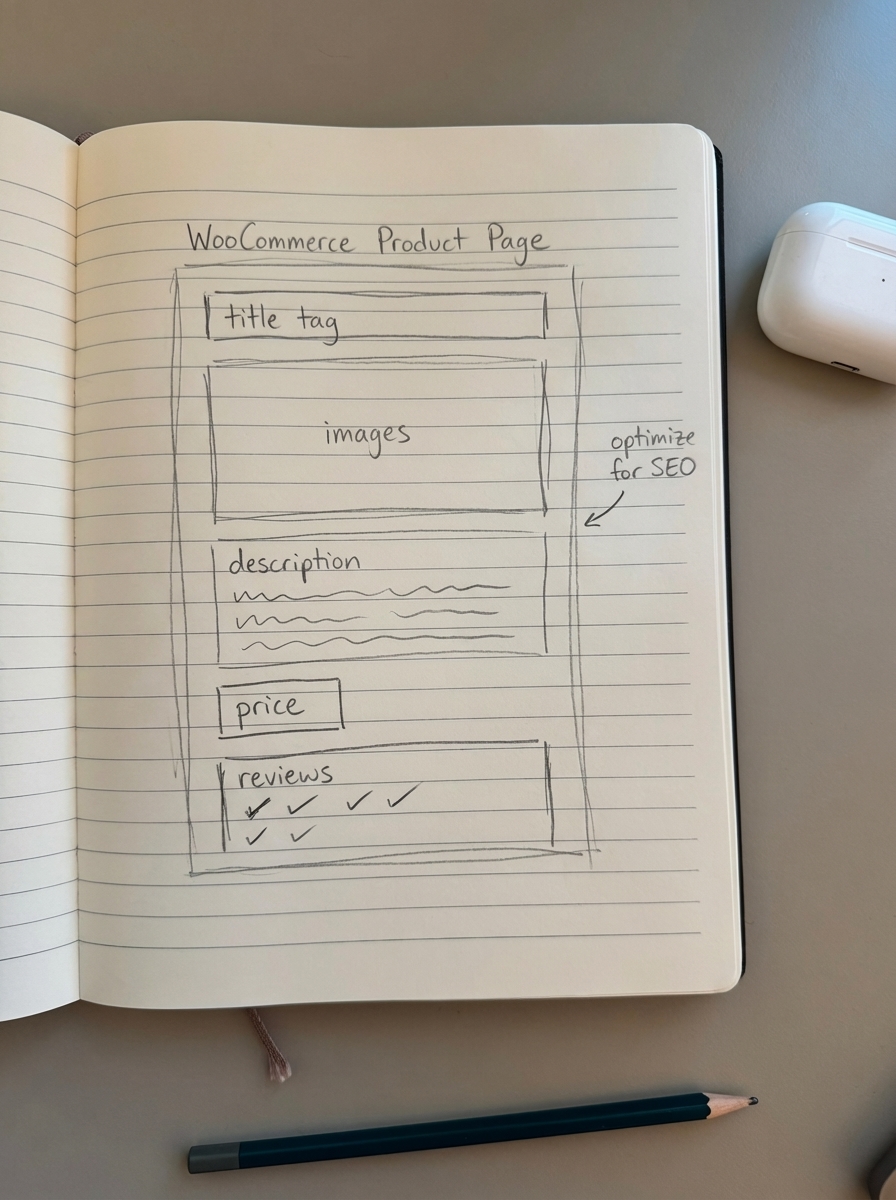 WooCommerce Product Page
title tag
images
optimize
for SEO
description
price
reviews